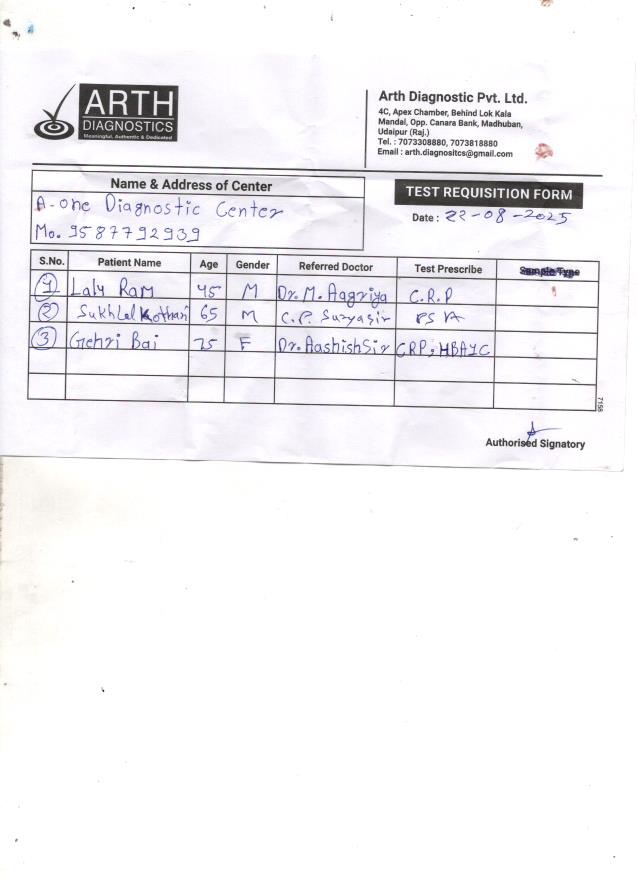 ARTH
DIAGNOSTICS
Meaningful, Authentic & Dedicated
Arth Diagnostic Pvt. Ltd.
4C, Apex Chamber, Behind Lok Kala
Mandal, Opp. Canara Bank, Madhuban,
Udaipur (Raj.)
Tel. : 7073308880, 7073818880
Email : arth.diagnositcs@gmail.com
Name & Address of Center
A-one Diagnostic Center
Mo. 9587792939
TEST REQUISITION FORM
Date : 22-08-2025
S.No. Patient Name Age Gender Referred Doctor Test Prescribe Sample Type
1 Lalu Ram 45 M Dr. M. Aagriya C.R.P
2 Sukhlal Kothari 65 M C.P. Suryasir PSA
3 Gehri Bai 75 F Dr. Aashish Sir CRP, HBA1C
7156
Authorised Signatory